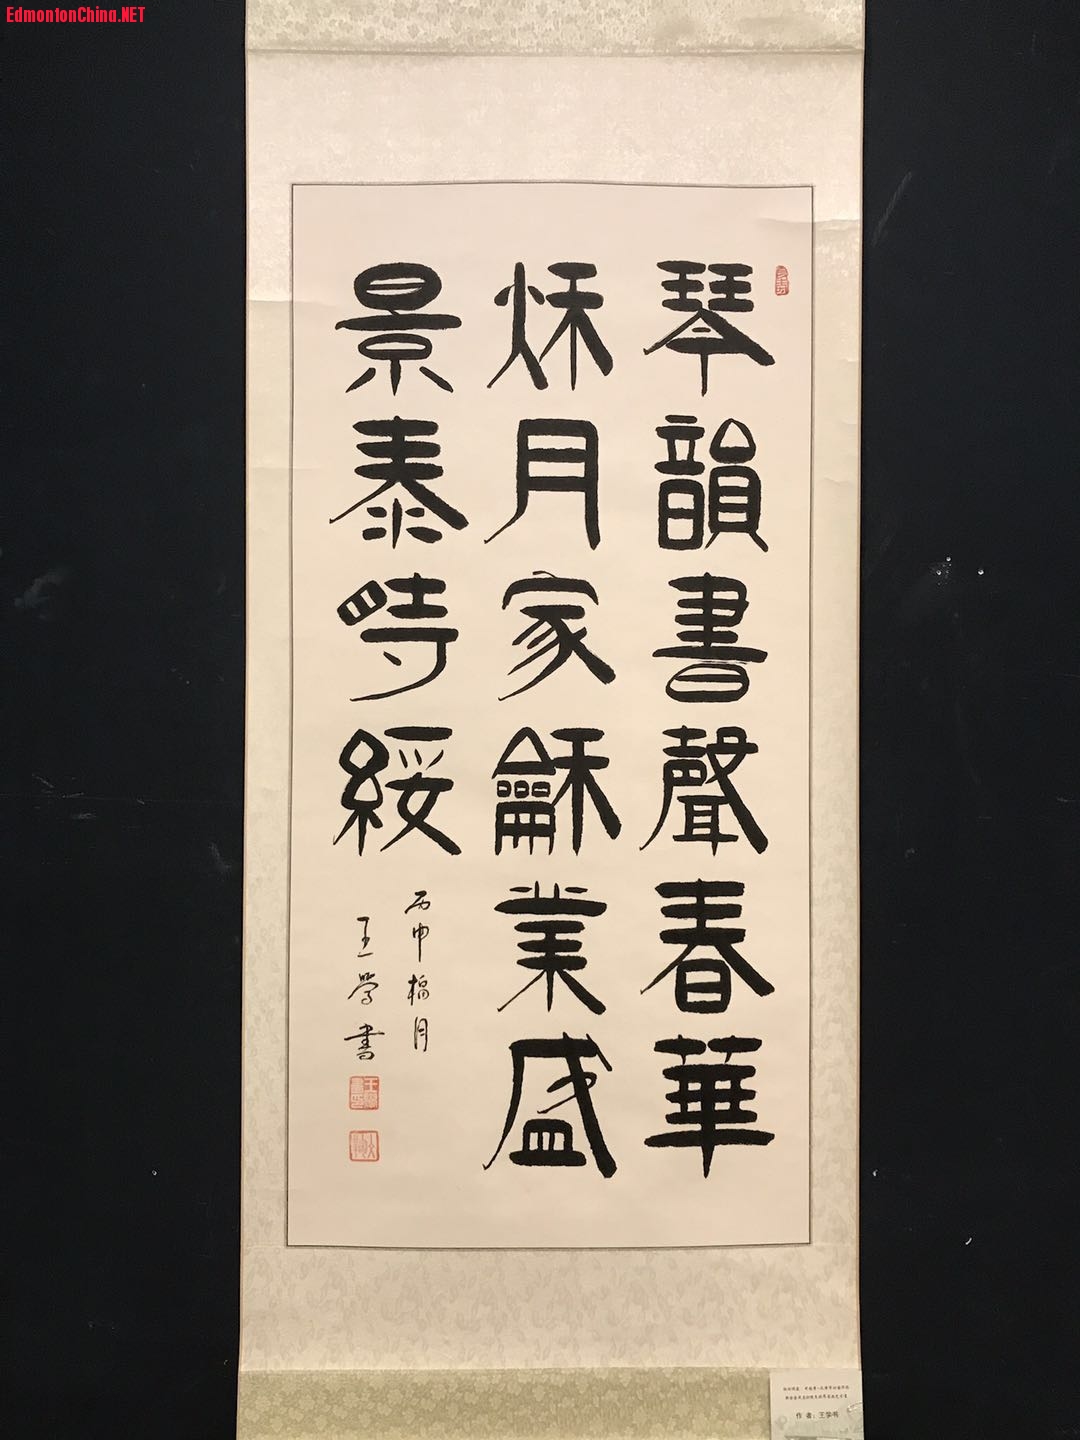 EdmontonChina.NET
琴韻書聲春華
秌月家龢業盛
景泰時綏
丙申榴月
王學書
作者：王学书